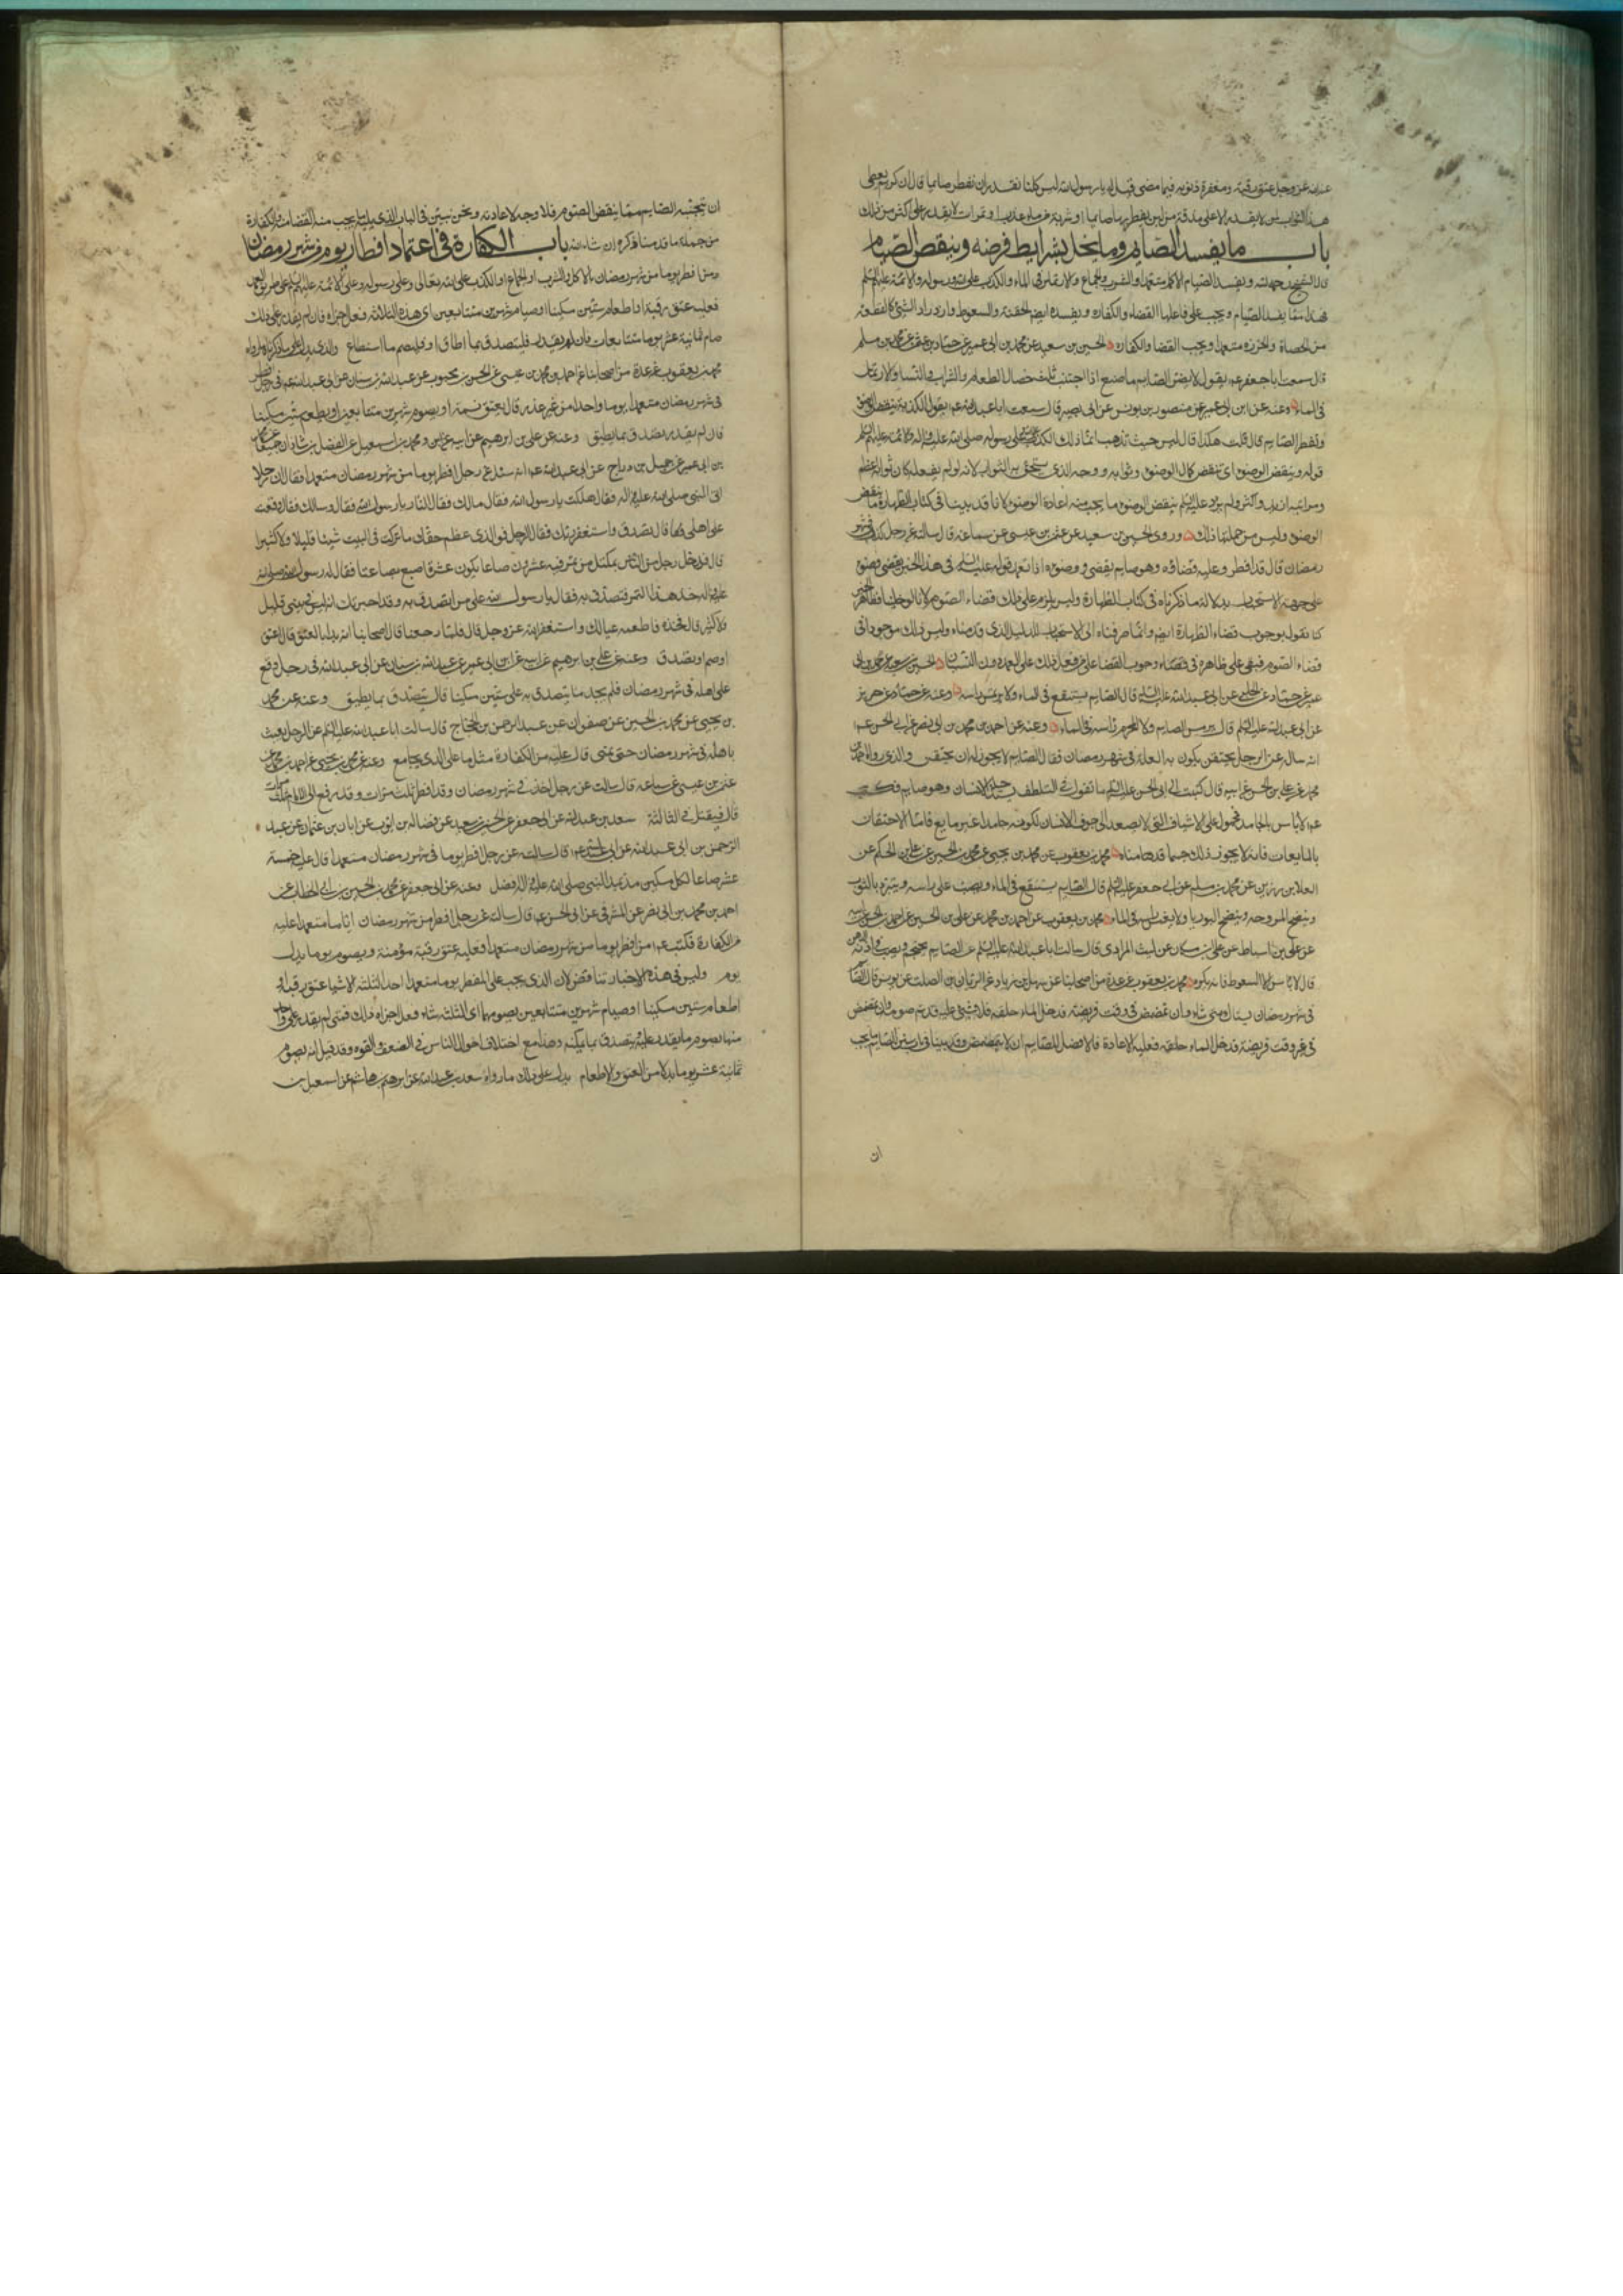 عند الله عز وجل عتق رقبة ومغفرة ذنوبه فيما مضى قيل له يا رسول الله ليس كلنا نقدر ان نفطر صايما قال ان الله كريم يعطى
هذا الثواب لمن لا يقدر الا على مذقة من لبن يفطر بها صايما او شربة من ماء عذب او تمرات لا يقدر على اكثر من ذلك
باب ما يفسد الصيام وما يخل بشرايط فرضه وينقض الصيام
قال الشيخ رحمه الله ويفسد الصيام الاكل متعمدا والشرب والجماع والارتماس فى الماء والكذب على الله ورسوله والائمة عليهم السلم
من الحصاة والخرزة متعمدا ويجب القضا والكفاره الحسين بن سعيد عن محمد بن ابى عمير عن حماد بن عثمن عن محمد بن مسلم
قال سمعت ابا جعفر عم يقول لا يضر الصايم ما صنع اذا اجتنب ثلث خصال الطعام والشراب والنسا والارتماس
فى الماء وعنه عن ابن ابى عمير عن منصور بن يونس عن ابى بصير قال سمعت ابا عبد الله عم يقول الكذبة ينقض الوضو
وتفطر الصايم قال قلت هلكنا قال ليس حيث تذهب انما ذلك الكذب على الله وعلى رسوله صلى الله عليه واله والائمة عليهم السلم
قوله وينقض الوضوء اى ينقض كمال الوضوء وثوابه ووجهه الذى يستحق به الثواب لانه لو لم يفعله كان ثوابه اعظم
ومراتبه ازيد واكثر ولم يرد عليه السلم ينقض الوضوء ما يجب منه اعادة الوضوء لانا قد بينا فى كتاب الطهارة ما ينقض
الوضوء وليس من جملتها ذلك وروى الحسين بن سعيد عن عثمن بن عيسى عن سماعة قال سالته عن رجل كذب فى شهر
رمضان قال قد افطر وعليه قضاؤه وهو صايم يقضى صومه ووضوءه اذا تعمد قوله عليه السلم فى هذا الخبر يقضى وضوءه
على جهة الاستحباب بدلالة ما ذكرناه فى كتاب الطهارة وليس يلزم على ذلك قضاء الصوم لانا لو خلينا وظاهر الخبر
كنا نقول بوجوب قضاء الطهارة ايضا وانما صرفناه الى الاستحباب للدليل الذى قدمناه وليس ذلك موجودا فى
قضاء الصوم فبقى على ظاهره فى قضاء وجوب القضا على من فعل ذلك على العمد دون النسيان الحسين بن سعيد عن محمد بن ابى
عمير عن حماد عن الحلبى عن ابى عبد الله عليه السلم قال الصايم يستنقع فى الماء ولا يرمس راسه وعنه عن حماد عن حريز
عن ابى عبد الله عليه السلم قال لا يرمس الصايم ولا المحرم راسه فى الماء وعنه عن احمد بن محمد بن ابى نصر عن ابى الحسن عم
انه ساله عن الرجل يحتقن يكون به العلة فى شهر رمضان فقال الصايم لا يجوز له ان يحتقن والذى رواه احمد بن
محمد عن على بن الحسن عن ابيه قال كتبت الى ابى الحسن عليه السلم ما تقول فى التلطف يستدخله الانسان وهو صايم فكتب
عم لا باس بالجامد محمول على الاشياف التى لا يصعد الى جوف الانسان لكونه جامدا غير مايع فاما الاحتقان
بالمايعات فانه لا يجوز ذلك حسبما قدمناه محمد بن يعقوب عن محمد بن يحيى عن محمد بن الحسين عن على بن الحكم عن
العلا بن رزين عن محمد بن مسلم عن ابى جعفر عليه السلم قال الصايم يستنقع فى الماء ويصب على راسه ويتبرد بالثوب
وينضح المروحة وينضح البوريا ولا يغمس راسه فى الماء محمد بن يعقوب عن احمد بن محمد عن على بن الحسين عن احمد بن الحسن عن ابيه
عن على بن اسباط عن على بن مسكان عن ليث المرادى قال سالت ابا عبد الله عليه السلم عن الصايم يحتجم ويصب فى اذنه الدهن
قال لا باس الا السعوط فانه يكره محمد بن يعقوب عن عدة من اصحابنا عن سهل بن زياد عن الريان بن الصلت عن يونس قال الصايم
فى شهر رمضان يستاك متى شاء وان تمضمض فى وقت فريضة فدخل الماء حلقه فلا شىء عليه وقد تم صومه وان تمضمض
فى غير وقت فريضة فدخل الماء حلقه فعليه الاعادة والافضل للصايم ان لا يتمضمض وقد بينا فى باب سنن الصايم ما يجب
ان
ان يجتنبه الصايم مما ينقض الصوم فلا وجه لاعادته ونحن نبين فى الباب الذى يليه ما يجب منه القضا والكفارة
من جملة ما قدمنا ذكره ان شاء الله باب الكفارة فى اعتماد افطار يوم من شهر رمضان
ومن افطر يوما من شهر رمضان بالاكل والشرب او الجماع او الكذب على الله تعالى وعلى رسوله وعلى الائمة عليهم السلم على طريق العمد
فعليه عتق رقبة او اطعام ستين مسكينا او صيام شهرين متتابعين اى هذه الثلاثة فعل اجزاه فان لم يقدر على ذلك
صام ثمانية عشر يوما متتابعات فان لم يقدر فليتصدق بما اطاق او فليصم ما استطاع والذى يدل على ما ذكرناه ما رواه
محمد بن يعقوب عن عدة من اصحابنا عن احمد بن محمد بن عيسى عن الحسن بن محبوب عن عبد الله بن سنان عن ابى عبد الله عم فى رجل افطر
فى شهر رمضان متعمدا يوما واحدا من غير عذر قال يعتق نسمة او يصوم شهرين متتابعين او يطعم ستين مسكينا
فان لم يقدر تصدق بما يطيق وعنه عن على بن ابرهيم عن ابيه ومحمد بن اسمعيل عن الفضل بن شاذان جميعا عن
بن ابى عمير عن جميل بن دراج عن ابى عبد الله عم انه سئل عن رجل افطر يوما من شهر رمضان متعمدا فقال ان رجلا
اتى النبى صلى الله عليه واله فقال هلكت يا رسول الله فقال مالك فقال النار يا رسول الله فقال ومالك فقال وقعت
على اهلى قال تصدق واستغفر ربك فقال الرجل فوالذى عظم حقك ما تركت فى البيت شيئا قليلا ولا كثيرا
قال فدخل رجل من الناس بمكتل من تمر فيه عشرون صاعا يكون عشرة اصيع بصاعنا فقال له رسول الله صلى الله
عليه واله خذ هذا التمر فتصدق به فقال يا رسول الله على من اتصدق به وقد اخبرتك انه ليس فى بيتى قليل
ولا كثير قال فخذه فاطعمه عيالك واستغفر الله عز وجل قال فلما رجعنا قال اصحابنا انه بدا بالعتق قال اعتق
او صم او تصدق وعنه عن على بن ابرهيم عن ابيه عن ابن ابى عمير عن عبد الله بن سنان عن ابى عبد الله فى رجل وقع
على اهله فى شهر رمضان فلم يجد ما يتصدق به على ستين مسكينا قال يتصدق بما يطيق وعنه عن محمد
بن يحيى عن محمد بن الحسين عن صفوان عن عبد الرحمن بن الحجاج قال سالت ابا عبد الله عليه السلم عن الرجل يعبث
باهله فى شهر رمضان حتى يمنى قال عليه من الكفارة مثل ما على الذى يجامع وعنه عن محمد بن يحيى عن احمد بن محمد عن
عثمن بن عيسى عن سماعة قال سالته عن رجل اخذ فى شهر رمضان وقد افطر ثلث مرات وقد رفع الى الامام ثلث مرات
قال فيقتل فى الثالثة سعد بن عبد الله عن ابى جعفر عن الحسين بن سعيد عن فضالة بن ايوب عن ابان بن عثمان عن عبد
الرحمن بن ابى عبد الله عن ابى عبد الله عم قال سالته عن رجل افطر يوما فى شهر رمضان متعمدا قال عليه خمسة
عشر صاعا لكل مسكين مد بمد النبى صلى الله عليه واله افضل وعنه عن ابى جعفر عن محمد بن الحسين بن ابى الخطاب عن
احمد بن محمد بن ابى نصر عن المشرقى عن ابى الحسن عم قال سالته عن رجل افطر من شهر رمضان اياما متعمدا ما عليه
من الكفارة فكتب عم من افطر يوما من شهر رمضان متعمدا فعليه عتق رقبة مؤمنة ويصوم يوما بدل
يوم وليس فى هذه الاخبار تناقض لان الذى يجب على المفطر يوما متعمدا احد الثلثة الاشيا عتق رقبة او
اطعام ستين مسكينا او صيام شهرين متتابعين يصومهما اى الثلث شاء فعل اجزاه ذلك فمتى لم يقدر على واحد
منها يصوم ما يقدر عليه او يتصدق بما يمكنه وهذا مع اختلاف احوال الناس فى الضعف والقوة وقد قيل انه يصوم
ثمانية عشر يوما بدلا من العتق والاطعام يدل على ذلك ما رواه سعد بن عبد الله عن ابرهيم بن هاشم عن اسمعيل بن